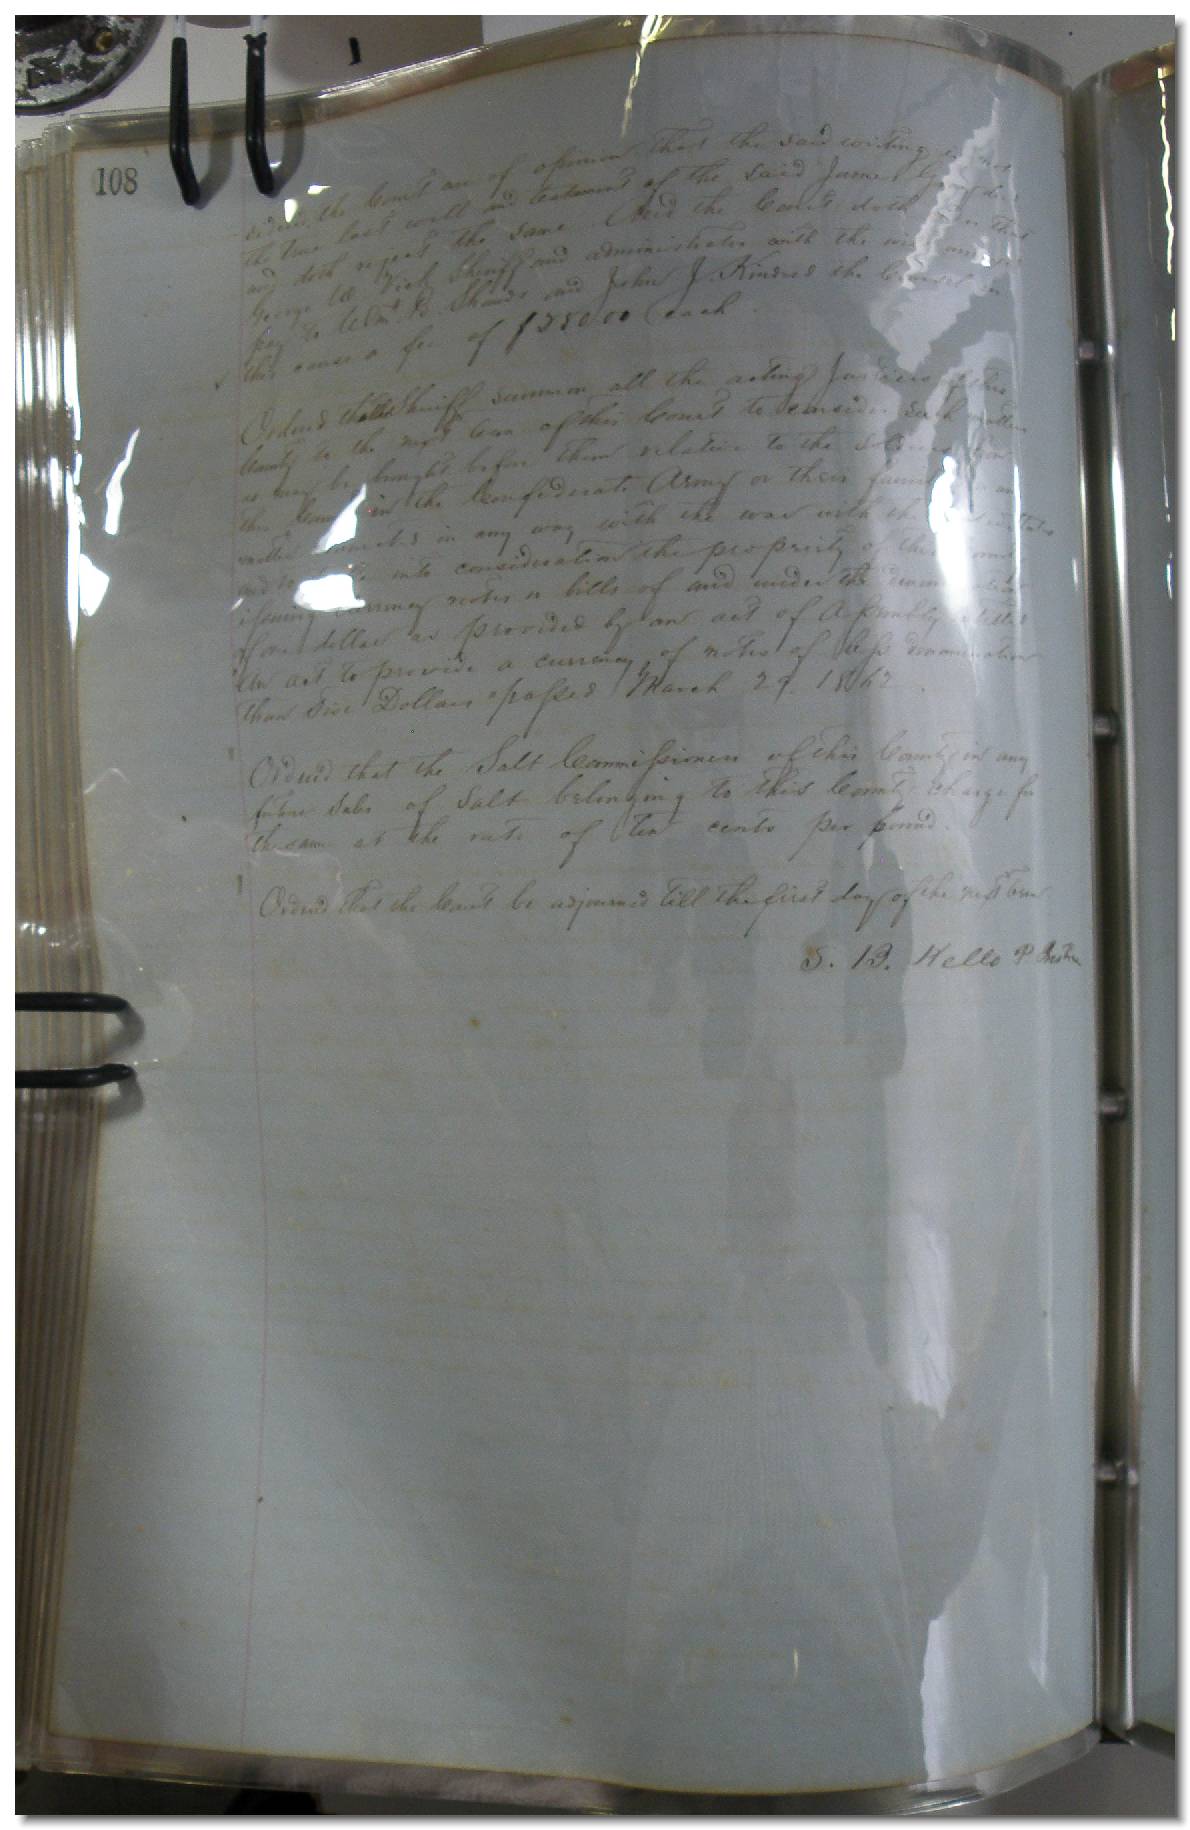 108
the Court are of opinion that the said writing is not
the true last will and testament of the said James
and doth reject the same. And the Court doth order that
George W Vick Sheriff and administrator with the will annexed
pay to Wm. B. Shands and John J. Kindred the Counsel in
this cause a fee of $250.00 each.
Ordered that the Sheriff summon all the acting Justices of this
County to the next term of this Court to consider such matters
as may be brought before them relative to the soldiers from
this County in the Confederate Army or their families or any
matter connected in any way with the war with the United States
and to take into consideration the propriety of this County
issuing currency notes or bills of and under the denomination
of one dollar as provided by an act of Assembly entitled
An act to provide a currency of notes of less denomination
than five Dollars passed March 29. 1862.
Ordered that the Salt Commissioners of this County in any
future sales of Salt belonging to this County charge for
the same at the rate of ten cents per pound.
Ordered that the Court be adjourned till the first day of the next term